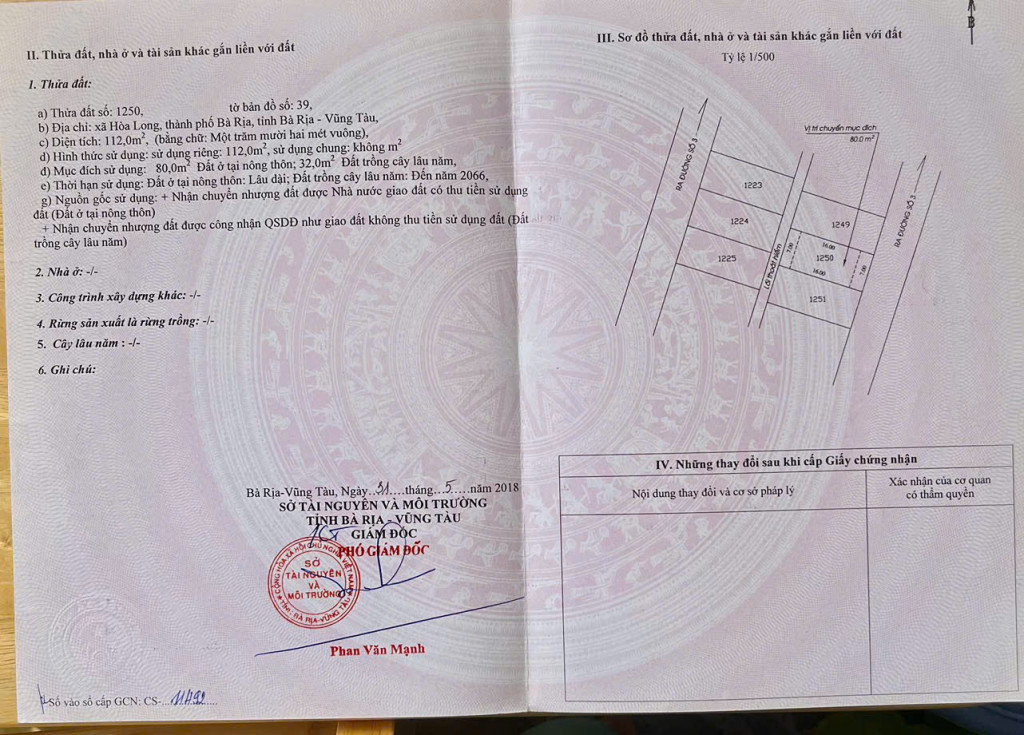 II. Thửa đất, nhà ở và tài sản khác gắn liền với đất
1. Thửa đất:
a) Thửa đất số: 1250, tờ bản đồ số: 39,
b) Địa chỉ: xã Hòa Long, thành phố Bà Rịa, tỉnh Bà Rịa - Vũng Tàu,
c) Diện tích: 112,0m², (bằng chữ: Một trăm mười hai mét vuông),
d) Hình thức sử dụng: sử dụng riêng: 112,0m², sử dụng chung: không m²
đ) Mục đích sử dụng: 80,0m² Đất ở tại nông thôn; 32,0m² Đất trồng cây lâu năm,
e) Thời hạn sử dụng: Đất ở tại nông thôn: Lâu dài; Đất trồng cây lâu năm: Đến năm 2066,
g) Nguồn gốc sử dụng: + Nhận chuyển nhượng đất được Nhà nước giao đất có thu tiền sử dụng
đất (Đất ở tại nông thôn)
+ Nhận chuyển nhượng đất được công nhận QSDĐ như giao đất không thu tiền sử dụng đất (Đất
trồng cây lâu năm)
2. Nhà ở: -/-
3. Công trình xây dựng khác: -/-
4. Rừng sản xuất là rừng trồng: -/-
5. Cây lâu năm : -/-
6. Ghi chú:
Bà Rịa-Vũng Tàu, Ngày..31....tháng...5.....năm 2018
SỞ TÀI NGUYÊN VÀ MÔI TRƯỜNG
TỈNH BÀ RỊA - VŨNG TÀU
GIÁM ĐỐC
PHÓ GIÁM ĐỐC
CỘNG HÒA XÃ HỘI CHỦ NGHĨA VIỆT NAM
SỞ
TÀI NGUYÊN
VÀ
MÔI TRƯỜNG
TỈNH BÀ RỊA-VŨNG TÀU
Phan Văn Mạnh
Số vào sổ cấp GCN: CS-...11492....
III. Sơ đồ thửa đất, nhà ở và tài sản khác gắn liền với đất
Tỷ lệ 1/500
B
Vị trí chuyển mục đích
80.0 m²
RA ĐƯỜNG SỐ 3
1223
1224
1225
Lối thoát hiểm
1249
16.00
7.00
1250
16.00
7.00
1251
RA ĐƯỜNG SỐ 3
IV. Những thay đổi sau khi cấp Giấy chứng nhận
Nội dung thay đổi và cơ sở pháp lý
Xác nhận của cơ quan
có thẩm quyền